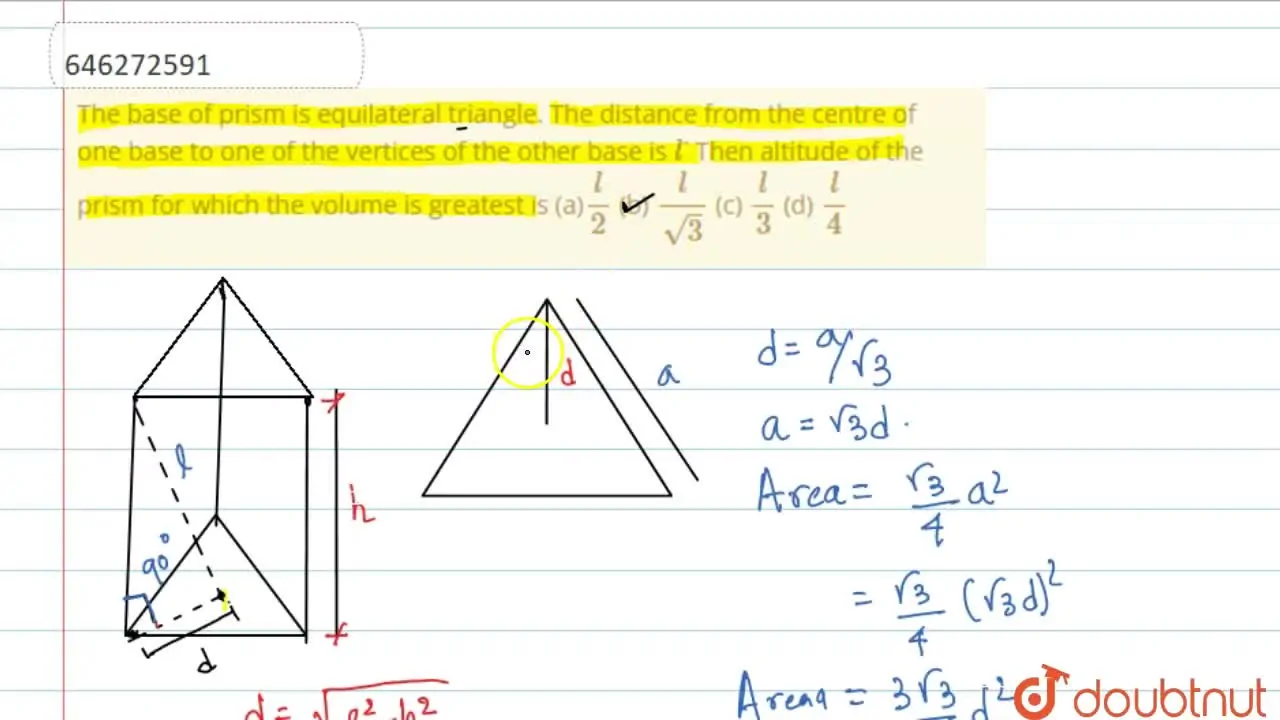 646272591
The base of prism is equilateral triangle. The distance from the centre of
one base to one of the vertices of the other base is l Then altitude of the
prism for which the volume is greatest is (a) l/2 (b) l/√3 (c) l/3 (d) l/4
d
a
d = a/√3
a = √3d.
l
h
Area = √3/4 a²
90°
= √3/4 (√3d)²
d
Area = 3√3 d²
d = √
doubtnut